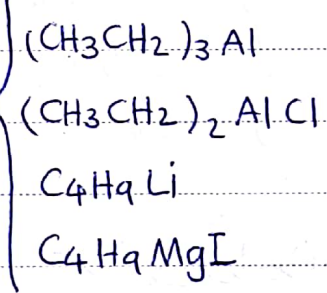 (CH3CH2)3Al
(CH3CH2)2AlCl
C4H9Li
C4H9MgI